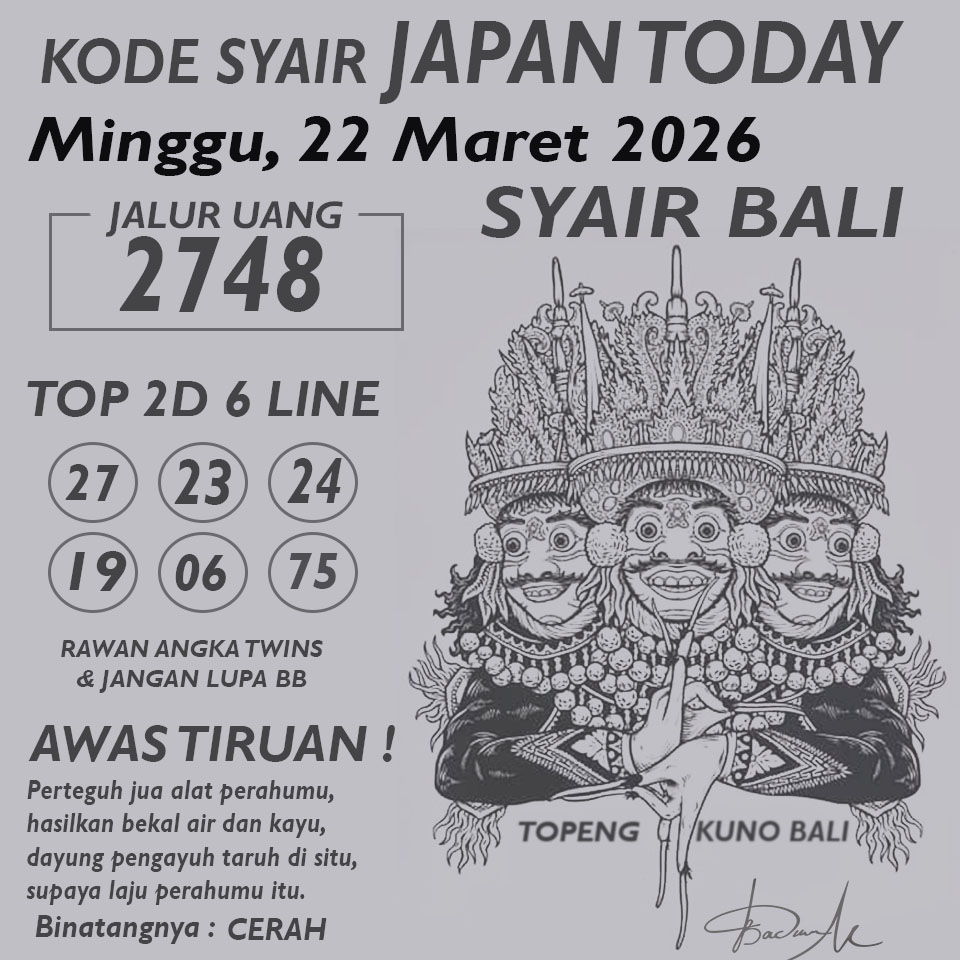 KODE SYAIR JAPAN TODAY
Minggu, 22 Maret 2026
SYAIR BALI
JALUR UANG
2748
TOP 2D 6 LINE
27 23 24
19 06 75
RAWAN ANGKA TWINS
& JANGAN LUPA BB
AWAS TIRUAN !
Perteguh jua alat perahumu,
hasilkan bekal air dan kayu,
dayung pengayuh taruh di situ,
supaya laju perahumu itu.
Binatangnya : CERAH
TOPENG KUNO BALI